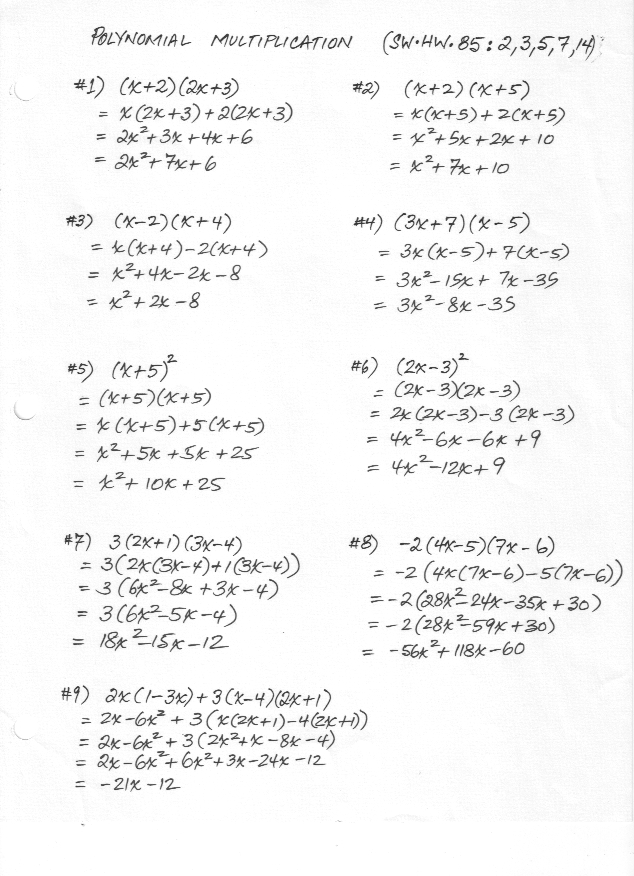 POLYNOMIAL MULTIPLICATION (SW·HW·85: 2,3,5,7,14)
#1) (x+2)(2x+3)
= x(2x+3)+2(2x+3)
= 2x²+3x+4x+6
= 2x²+7x+6
#2) (x+2)(x+5)
= x(x+5)+2(x+5)
= x²+5x+2x+10
= x²+7x+10
#3) (x-2)(x+4)
= x(x+4)-2(x+4)
= x²+4x-2x-8
= x²+2x-8
#4) (3x+7)(x-5)
= 3x(x-5)+7(x-5)
= 3x²-15x+7x-35
= 3x²-8x-35
#5) (x+5)²
= (x+5)(x+5)
= x(x+5)+5(x+5)
= x²+5x+5x+25
= x²+10x+25
#6) (2x-3)²
= (2x-3)(2x-3)
= 2x(2x-3)-3(2x-3)
= 4x²-6x-6x+9
= 4x²-12x+9
#7) 3(2x+1)(3x-4)
= 3(2x(3x-4)+1(3x-4))
= 3(6x²-8x+3x-4)
= 3(6x²-5x-4)
= 18x²-15x-12
#8) -2(4x-5)(7x-6)
= -2(4x(7x-6)-5(7x-6))
= -2(28x²-24x-35x+30)
= -2(28x²-59x+30)
= -56x²+118x-60
#9) 2x(1-3x)+3(x-4)(2x+1)
= 2x-6x²+3(x(2x+1)-4(2x+1))
= 2x-6x²+3(2x²+x-8x-4)
= 2x-6x²+6x²+3x-24x-12
= -21x-12